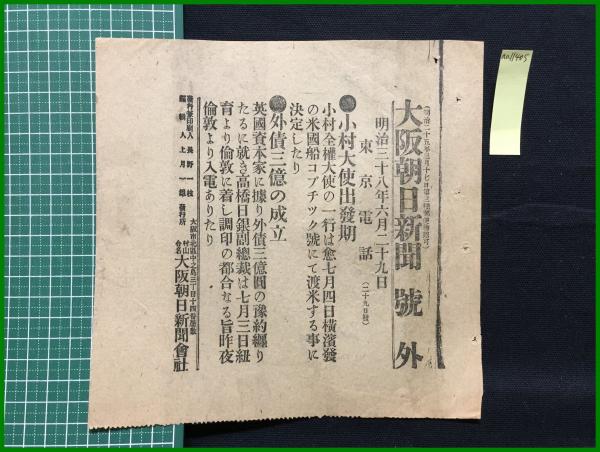 大阪朝日新聞 號外
明治三十八年六月二十九日
東京電話 (二十九日發)
●小村大使出發期
小村全權大使の一行は愈七月四日横濱發
の米國船コプチツク號にて渡米する事に
決定したり
●外債三億の成立
英國資本家に據り外債三億圓の豫約纒り
たるに就き高橋日銀副總裁は七月三日紐
育より倫敦に着し調印の都合なる旨昨夜
倫敦より入電ありたり
發行兼印刷人 長野一枝
編輯人 上月一
發行所
大阪市北區中之島三丁目十四番屋敷
村山合名大阪朝日新聞會社